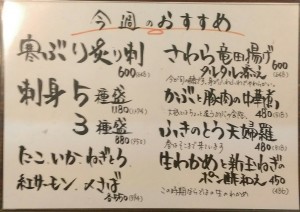 今週のおすすめ
寒ぶり炙り刺
600
刺身5種盛
1180
3種盛
880
たこ、いか、ねぎとろ
紅サーモン、〆さば
各550
さわら竜田揚げ
タルタル添え
600
かぶと豚肉の中華煮
480
ふきのとう天婦羅
480
生わかめと新玉ねぎの
ポン酢和え 450
この時期ならではの生のわかめ